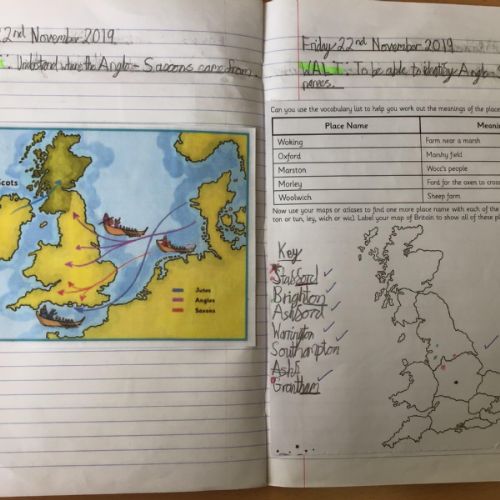 22nd November 2019
: Understand where the Anglo-Saxons came from.
Scots
Jutes
Angles
Saxons
Friday 22nd November 2019
WALT: To be able to identify Anglo-S
names.
Can you use the vocabulary list to help you work out the meanings of the place
Place Name Meani
Woking Farm near a marsh
Oxford Marshy field
Marston Wocc's people
Morley Ford for the oxen to cross
Woolwich Sheep farm
Now use your maps or atlases to find one more place name with each of the
ton or tun, ley, wich or wic). Label your map of Britain to show all of these pla
Key
Brighton
Ashford
Warrington
Southampton
Grantham